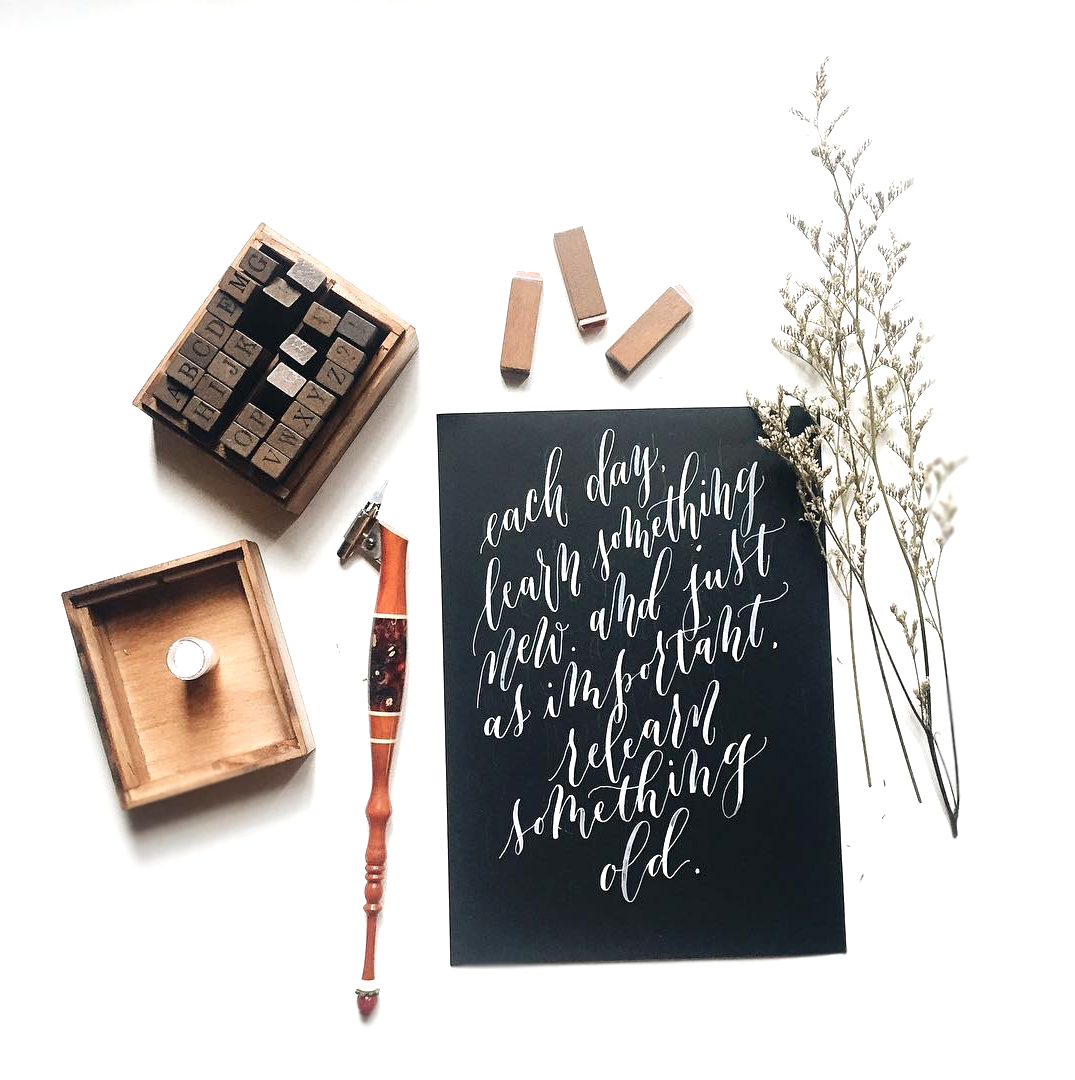 each day,
learn something
new. and just
as important.
relearn
something
old.
G
M
E
D
C
B
A
K
J
I
H
P
O
?
Z
Y
X
W
V